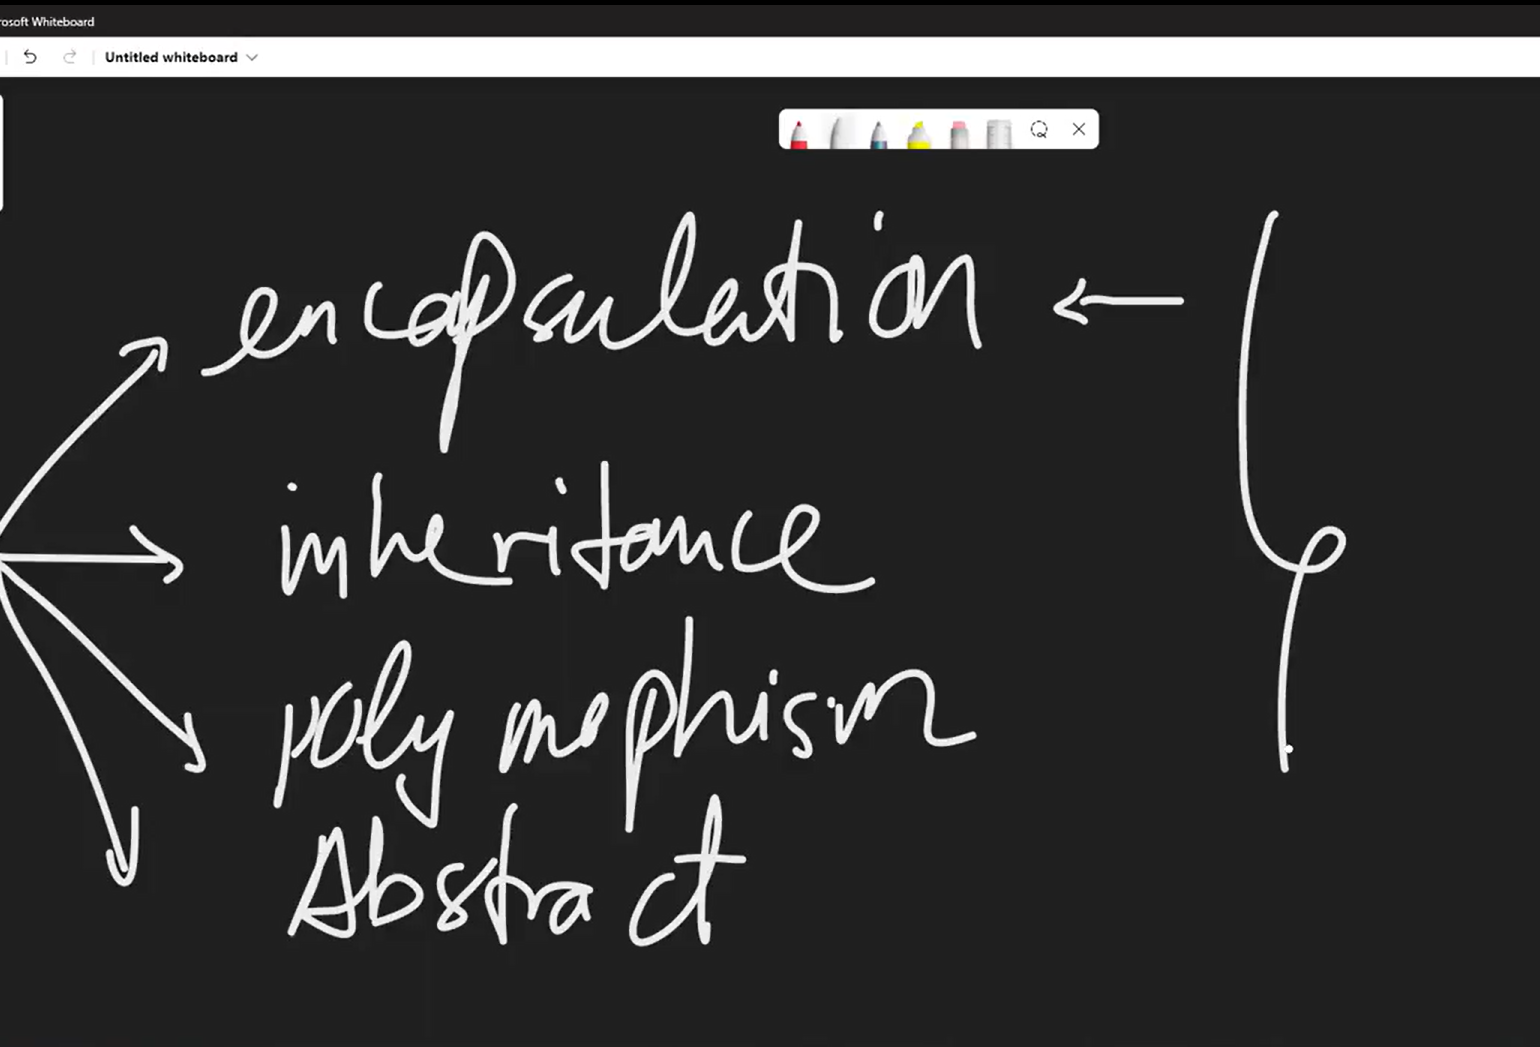 rosoft Whiteboard
Untitled whiteboard
encapsulation
inheritance
polymophism
Abstract